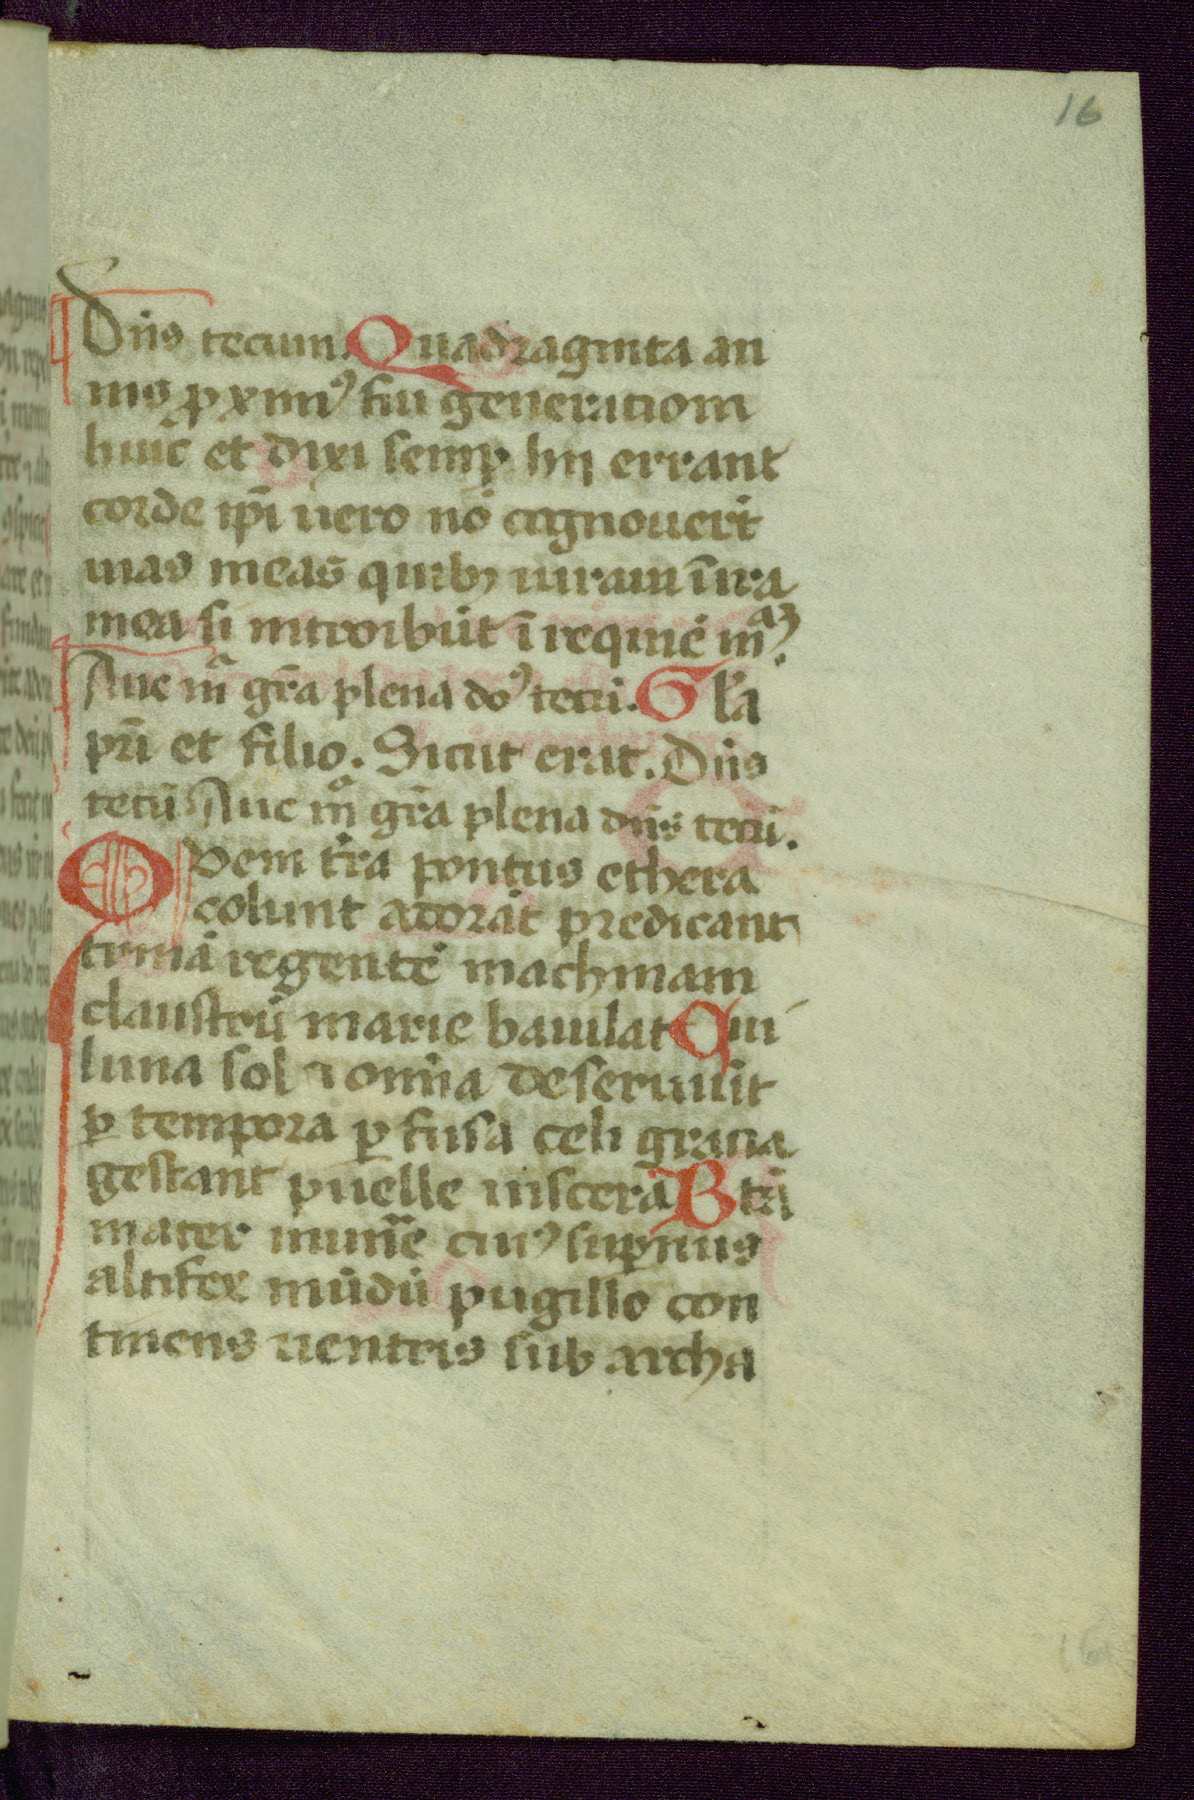 16
Dn̄s tecum. Quadraginta an
nis ꝓximꝰ fui generationi
huic et dixi semꝑ hii errant
corde ip̄i uero nō cognouer̄t
uias meas quibꝫ iuraui ī ira
mea si introibūt ī requiē mᵃꝫ.
Aue mᵃ gr̄a plena doꝰ tecū. Gl̄a
pr̄i et filio. Sicut erat. Dn̄s
tecū Aue mᵃ gr̄a plena dn̄s tecū.
Quem t̄ra pontus ethera
colunt adorāt predicant
trinā regentē machinam
claustrū marie baiulat Cui
luna sol ⁊ om̄ia deseruiūt
ꝑ tempora ꝑfusa celi gracia
gestant puelle uiscera Btā
mater mun̄e cuiꝰ suꝑnus
altifex mūdū pugillo con
tinens uentris sub archa
16